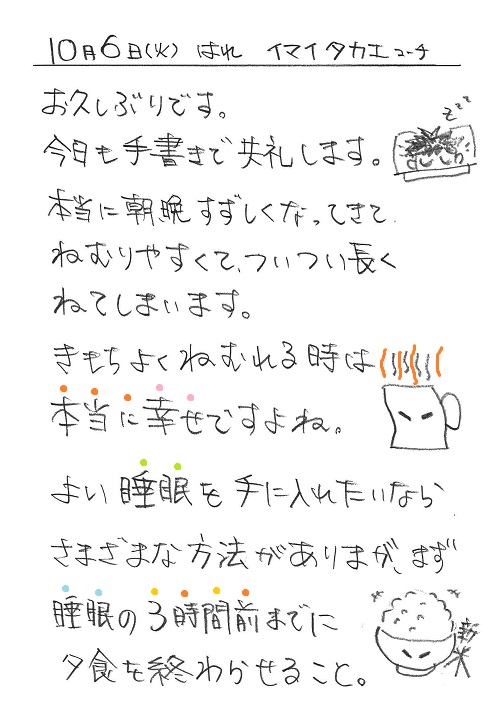 10月6日(火) はれ イマイタカエコーチ
お久しぶりです。
今日も手書きで失礼します。
zzz
本当に朝晩すずしくなってきて、
ねむりやすくて、ついつい長く
ねてしまいます。
きもちよくねむれる時は
本当に幸せですよね。
よい睡眠を手に入れたいなら
さまざまな方法がありまが、まず
睡眠の3時間前までに
新米
夕食を終わらせること。